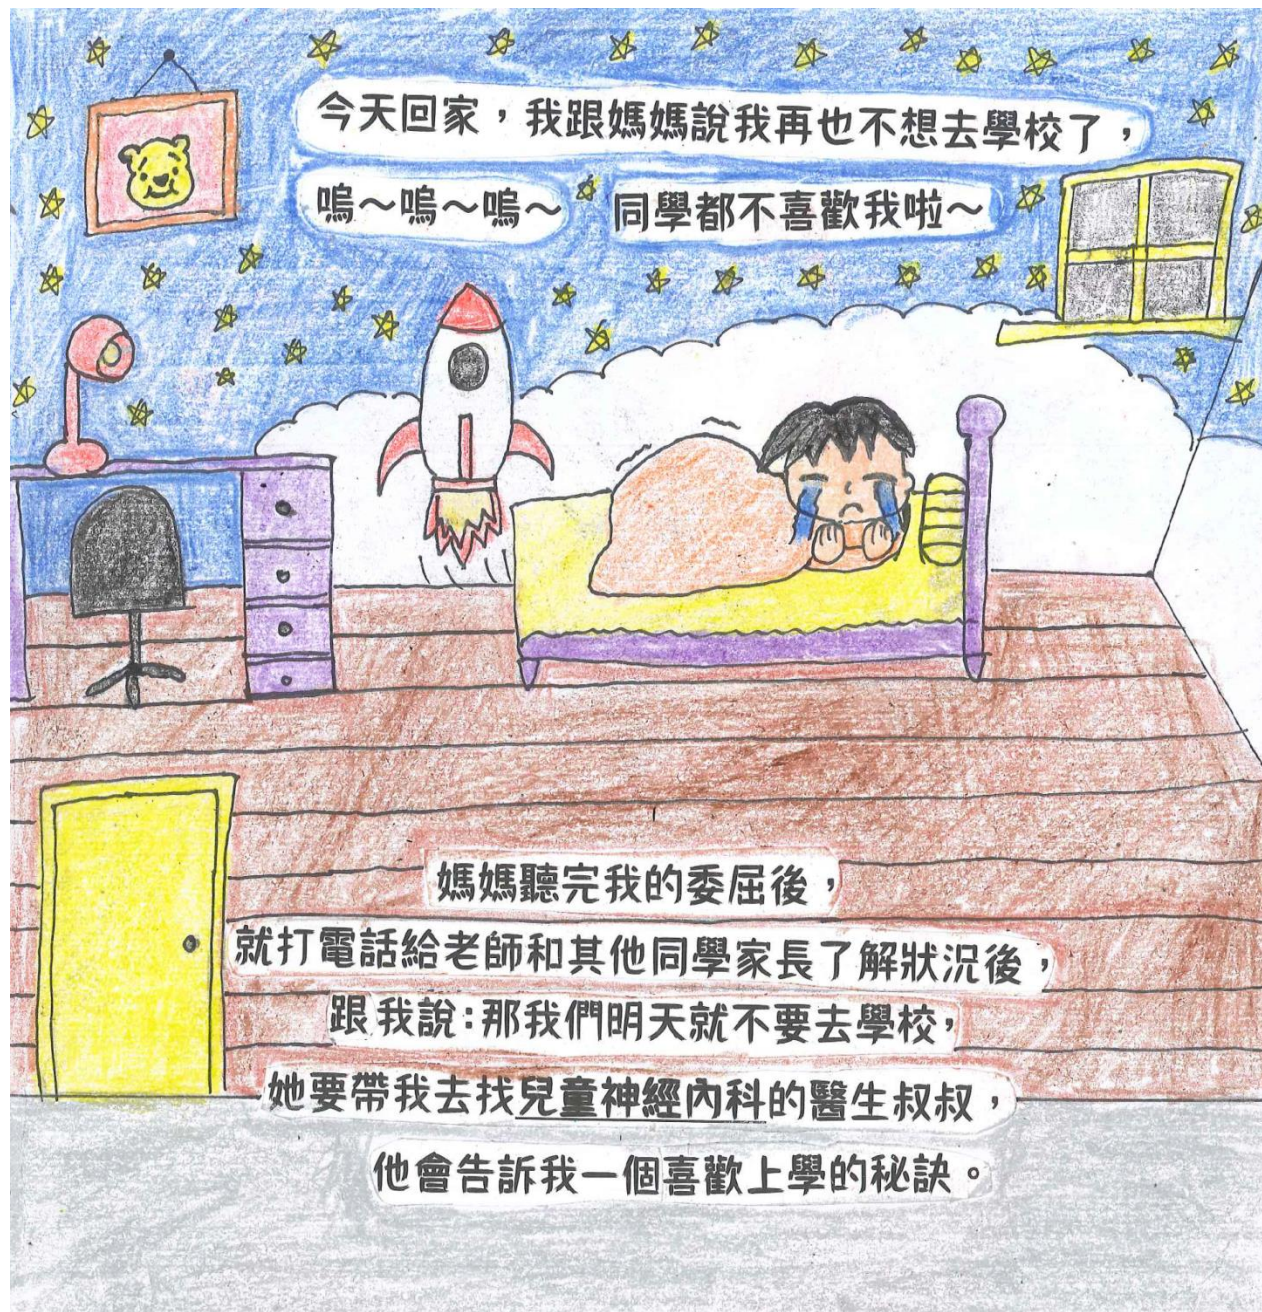 今天回家，我跟媽媽說我再也不想去學校了，
嗚～嗚～嗚～　同學都不喜歡我啦～
媽媽聽完我的委屈後，
就打電話給老師和其他同學家長了解狀況後，
跟我說：那我們明天就不要去學校，
她要帶我去找兒童神經內科的醫生叔叔，
他會告訴我一個喜歡上學的秘訣。